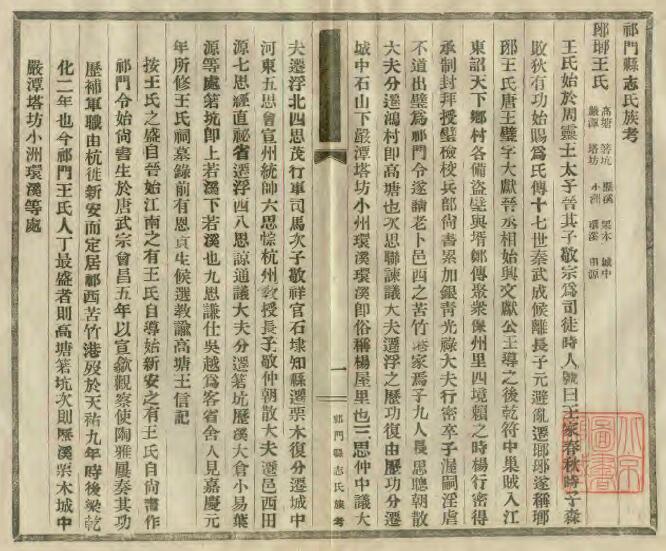 祁門縣志氏族考
瑯琊王氏 高塘 箬坑 歷溪 栗木 城中
嚴潭 塔坊 小洲 環溪
王氏始於周靈王太子晉其子敬宗為司徒時人號曰王家春秋時子森
敗狄有功始賜為氏傳十七世秦武成候離長子元避亂遷瑯琊遂稱瑯
琊王氏唐王璧字大獻晉丞相始興文獻公王導之後乾符中巢賊入江
東詔天下鄉村各備盜璧與壻鄭傳聚衆保州里四境賴之時楊行密得
承制封拜授璧檢校兵部尚書累加銀青光祿大夫行密卒子渥嗣淫虐
不道出璧為祁門令遂請老卜邑西之苦竹港家焉子九人長思聰朝散
大夫分遷鴻村即高塘也次思聯諫議大夫遷浮之歷功復由歷功分遷
城中石山下嚴潭塔坊小州環溪環溪即俗稱楊屋里也三思仲中議大
夫遷浮北四思茂行軍司馬次子敬祥官石埭知縣遷栗木復分遷城中
河東五思會宣州統帥六思悰杭州教授長子敬仲朝散大夫遷邑西田
源七思經直祕省遷浮四八思諒通議大夫分遷箬坑歷溪大倉小易葉
源等處箬坑即上若溪下若溪也九思謙仕吳越為客省舍人見嘉慶元
年所修王氏祠墓錄前有恩貢生候選教諭高塘王信記
按王氏之盛自晉始江南之有王氏自導始新安之有王氏自尚書作
祁門令始尚書生於唐武宗會昌五年以宣歙觀察使陶雅屢奏其功
歷補軍職由杭徙新安而定居祁西苦竹港歿於天祐九年時後梁乾
化二年也今祁門王氏人丁最盛者則高塘箬坑次則歷溪栗木城中
嚴潭塔坊小洲環溪等處
一
祁門縣志氏族考